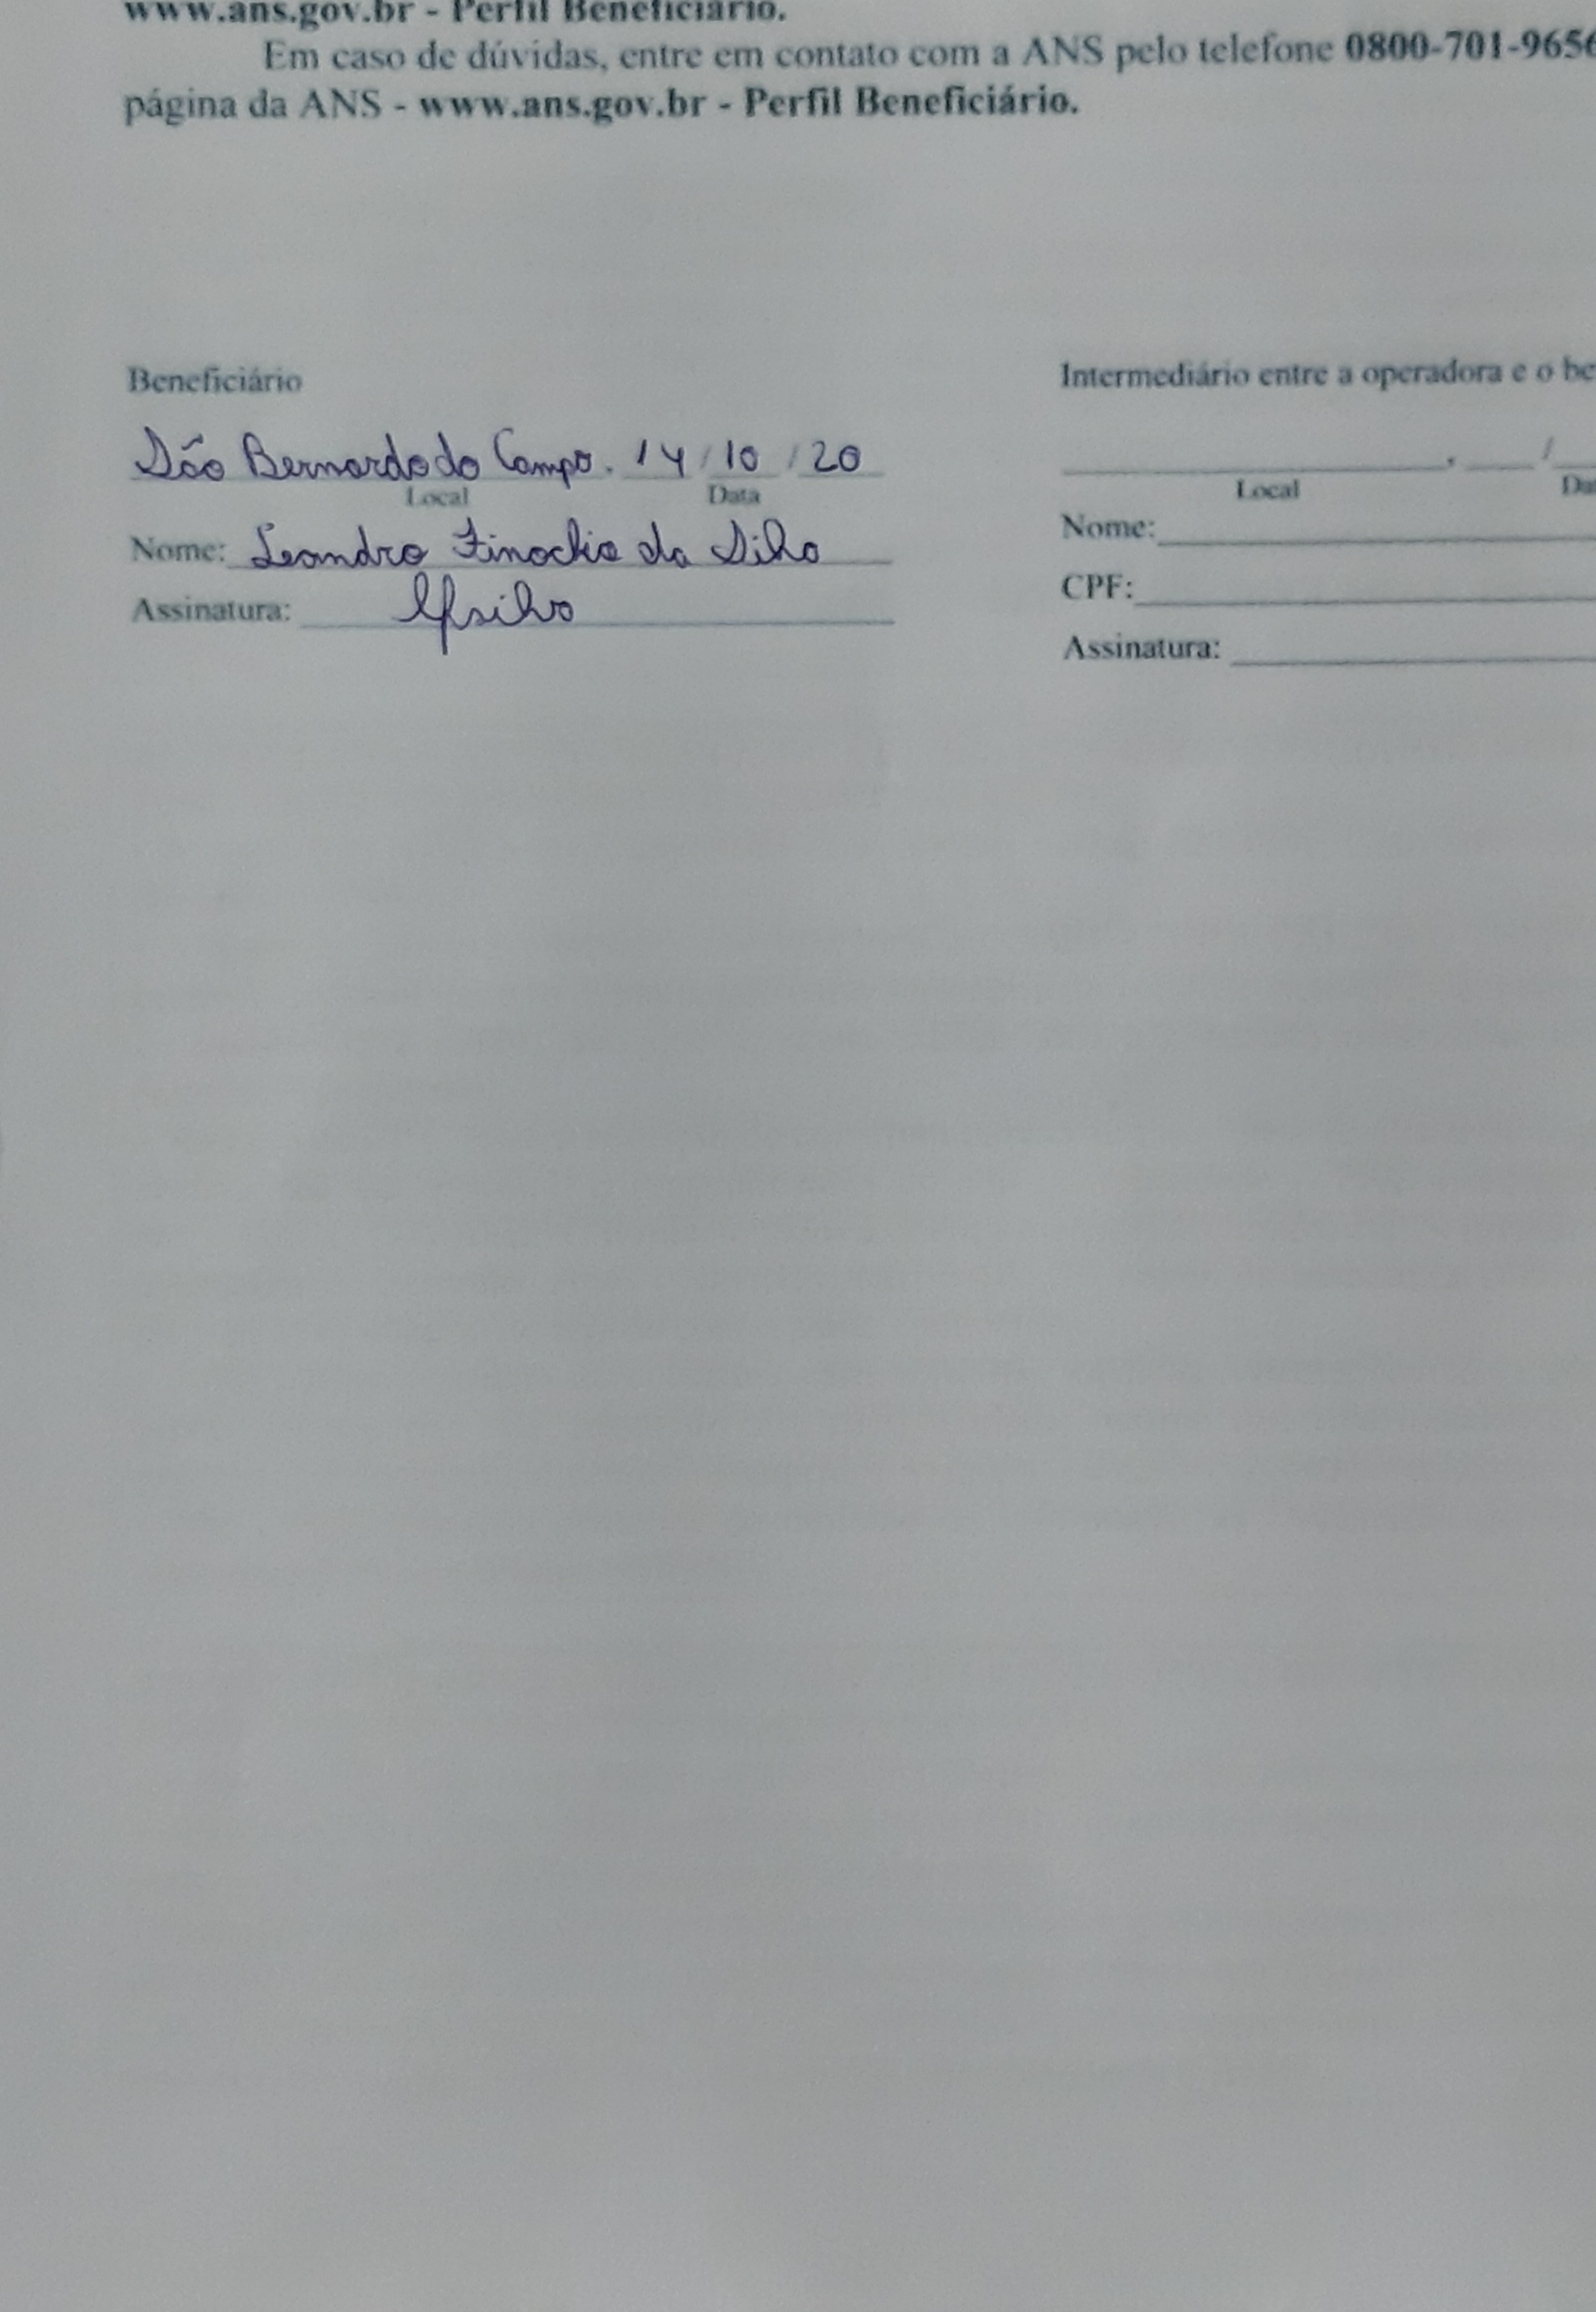 www.ans.gov.br - Perfil Beneficiário.
Em caso de dúvidas, entre em contato com a ANS pelo telefone 0800-701-9656
página da ANS - www.ans.gov.br - Perfil Beneficiário.
Beneficiário
São Bernardo do Campo, 14/10/20
Local Data
Nome: Leandro Finochio da Silva
Assinatura: lfsilva
Intermediário entre a operadora e o be
, /
Local Da
Nome:
CPF:
Assinatura: